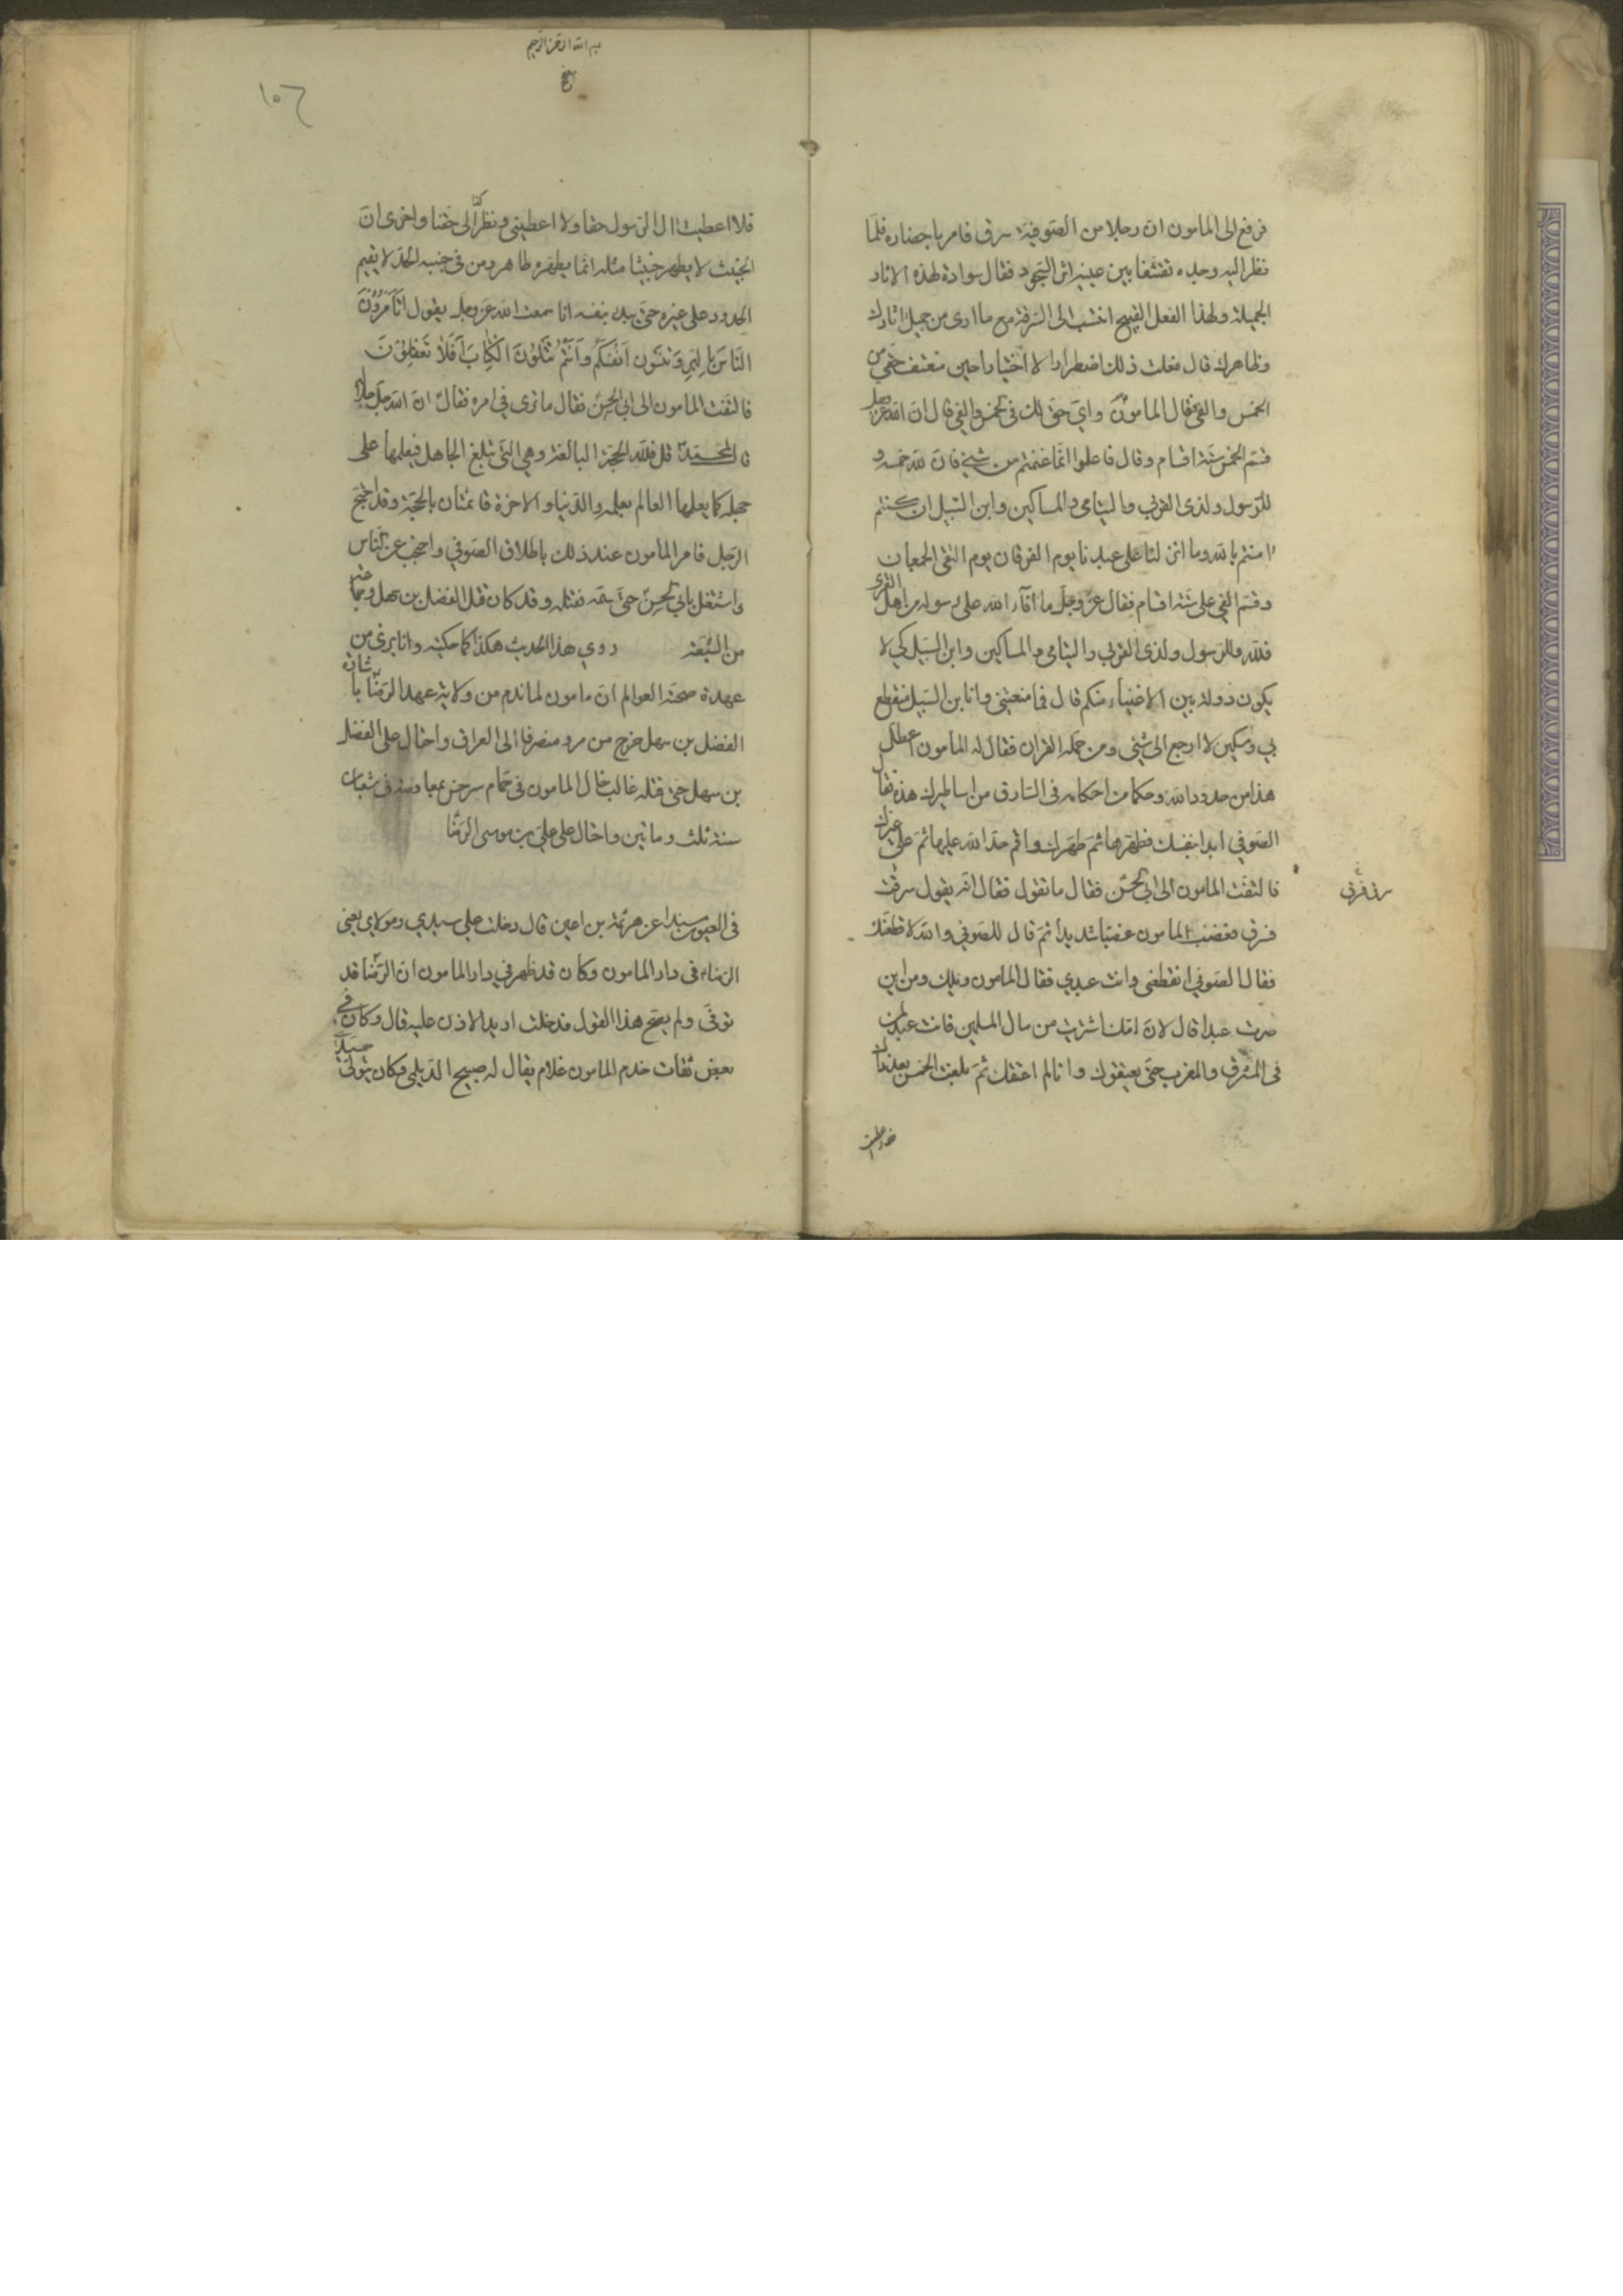 فرفع الى المامون ان رجلا من الصوفية سرق فامر باحضاره فلما
نظر اليه وجده متقشفا بين عينيه اثر السجود فقال سوءة لهذه الاثار
الجميلة ولهذا الفعل القبيح اتنسب الى السرقة مع ما ارى من جميل اثارك
وظاهرك قال فعلت ذلك اضطرارا لا اختيارا حين منعتنى حقى من
الخمس والفئ فقال المامون واى حق لك فى الخمس والفئ قال ان الله عز وجل
قسم الخمس ستة اقسام وقال فاعلموا انما غنمتم من شئ فان لله خمسه و
للرسول ولذى القربى واليتامى والمساكين وابن السبيل ان كنتم
امنتم بالله وما انزلنا على عبدنا يوم الفرقان يوم التقى الجمعان
وقسم الفئ على ستة اقسام فقال عز وجل ما افاء الله على رسوله من اهل القرى
فلله وللرسول ولذى القربى واليتامى والمساكين وابن السبيل كى لا
يكون دولة بين الاغنياء منكم قال فما منعتنى وانا ابن السبيل منقطع
بى ومسكين لا ارجع الى شئ ومن حملة القران فقال له المامون اعطل
هذا من حدود الله وحكما من احكامه فى السارق من اساطيرك هذه فقال
الصوفى ابدا بنفسك فطهرها ثم طهر غيرك واقم حد الله عليها ثم على غيرك
فالتفت المامون الى ابى الحسن فقال ما تقول فقال انه يقول سرقت
فسرق فغضب المامون غضبا شديدا ثم قال للصوفى والله لاقطعنك
فقال الصوفى اتقطعنى وانت عبدى فقال المامون ويلك ومن اين
صرت عبدا قال لان امك اشتريت من مال المسلمين فانت عبد لمن
فى المشرق والمغرب حتى يعتقوك وانا لم اعتقك ثم بلعت الخمس بعد ذلك
بسم الله الرحمن الرحيم
١٥٦
فلا اعطيت ال الرسول حقا ولا اعطيتنى ونظرائى حقنا واخرى ان
الخبيث لا يطهر خبيثا مثله انما يطهره طاهر ومن فى جنبه الحد لا يقيم
الحدود على غيره حتى يبدا بنفسه اما سمعت الله عز وجل يقول اتأمرون
الناس بالبر وتنسون انفسكم وانتم تتلون الكتاب افلا تعقلون
فالتفت المامون الى ابى الحسن فقال ما ترى فى امره فقال ان الله جل جلاله
قال لمحمد قل فلله الحجة البالغة وهى التى تبلغ الجاهل فيعلمها على
جهله كما يعلمها العالم بعلمه والدنيا والاخرة قائمتان بالحجة وقد احتج
الرجل فامر المامون عند ذلك باطلاق الصوفى واحتجب عن الناس
واشتغل بابى الحسن حتى سمه فقتله وقد كان قتل الفضل بن سهل وجماعة
من الشيعة روى هذا الحديث هكذا كما حكيته وانا برئ من
عهدة صحته العوالم ان مامون لما ندم من ولاية عهد الرضا باشارة
الفضل بن سهل خرج من مرو منصرفا الى العراق واحتال على الفضل
بن سهل حتى قتله غالب خال المامون فى حمام سرخس مغافصة فى شعبان
سنة ثلث ومائتين واحتال على على بن موسى الرضا
فى العيون مسندا عن هرثمة بن اعين قال دخلت على سيدى ومولاى يعنى
الرضا فى دار المامون وكان قد ظهر فى دار المامون ان الرضا قد
توفى ولم يصح هذا القول فدخلت اريد الاذن عليه قال وكان فى
بعض ثقات خدم المامون غلام يقال له صبيح الديلمى وكان يتولى